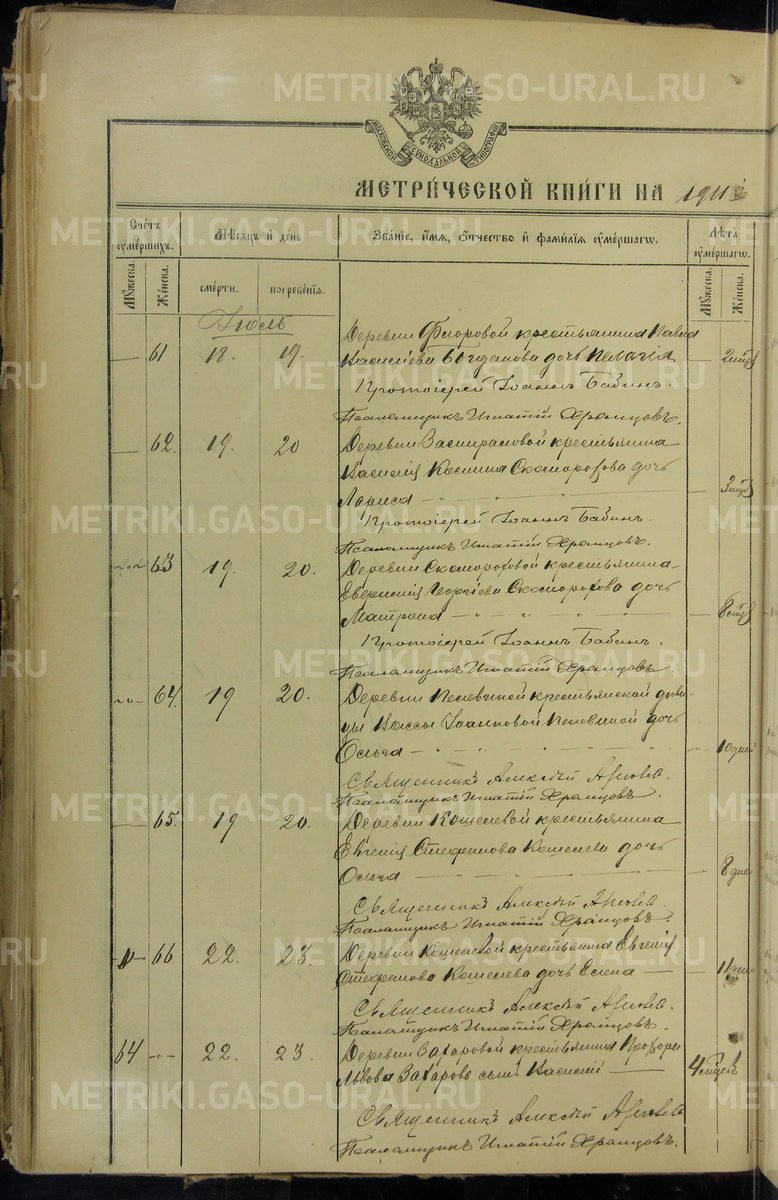 МОСКОВСКОЙ СѴНОДАЛЬНОЙ ТИПОГРАФІИ
МЕТРИ́ЧЕСКОЙ КНИ́ГИ НА 1911
Сче́тъ ᲂу҆ме́ршихъ. Мѣ́сѧцъ и҆ де́нь Зва́нїе, и҆́мѧ, ѻ҆́тчество и҆ фамилїѧ ᲂу҆ме́ршагѡ. Лѣ́та ᲂу҆ме́ршагѡ.
Мꙋ́жеска. Же́нска. сме́рти. погребе́нїѧ. Мꙋ́жеска. Же́нска.
Іюль
Деревни Флоровой крестьянина Павла
61 18. 19. Василіева Богданова дочь Пелагія
Протоіерей Іоаннъ Бабинъ.
Псаломщикъ Игнатій Храмцовъ.
62. 19. 20 Деревни крестьянина
Василія Косьмина Скоморохова дочь
Лариса
Протоіерей Іоаннъ Бабинъ.
Псаломщикъ Игнатій Храмцовъ.
63 19. 20. Деревни Скомороховой крестьянина
Георгіева Скоморохова дочь
Матрона
Протоіерей Іоаннъ Бабинъ.
Псаломщикъ Игнатій Храмцовъ
64. 19 20. Деревни Пелевиной крестьянской дѣви-
цы Вассы Іоанновой Пелевиной дочь
Ольга 10 дней
Священникъ Алексѣй
Псаломщикъ Игнатій Храмцовъ.
65. 19 20. Деревни Кошелевой крестьянина
Евгенія Стефанова Кошелева дочь
Ольга 8 дне
Священникъ Алексѣй
Псаломщикъ Игнатій Храмцовъ.
66 22. 23. Деревни Кошелевой крестьянина Евгенія
Стефанова Кошелева дочь Елена 11
Священникъ Алексѣй
Псаломщикъ Игнатій Храмцовъ.
64 22. 23. Деревни Захаровой крестьянина
Львова Захарова сынъ Василій 4
Священникъ Алексѣй
Псаломщикъ Игнатій Храмцовъ.
METRIKI.GASO-URAL.RU